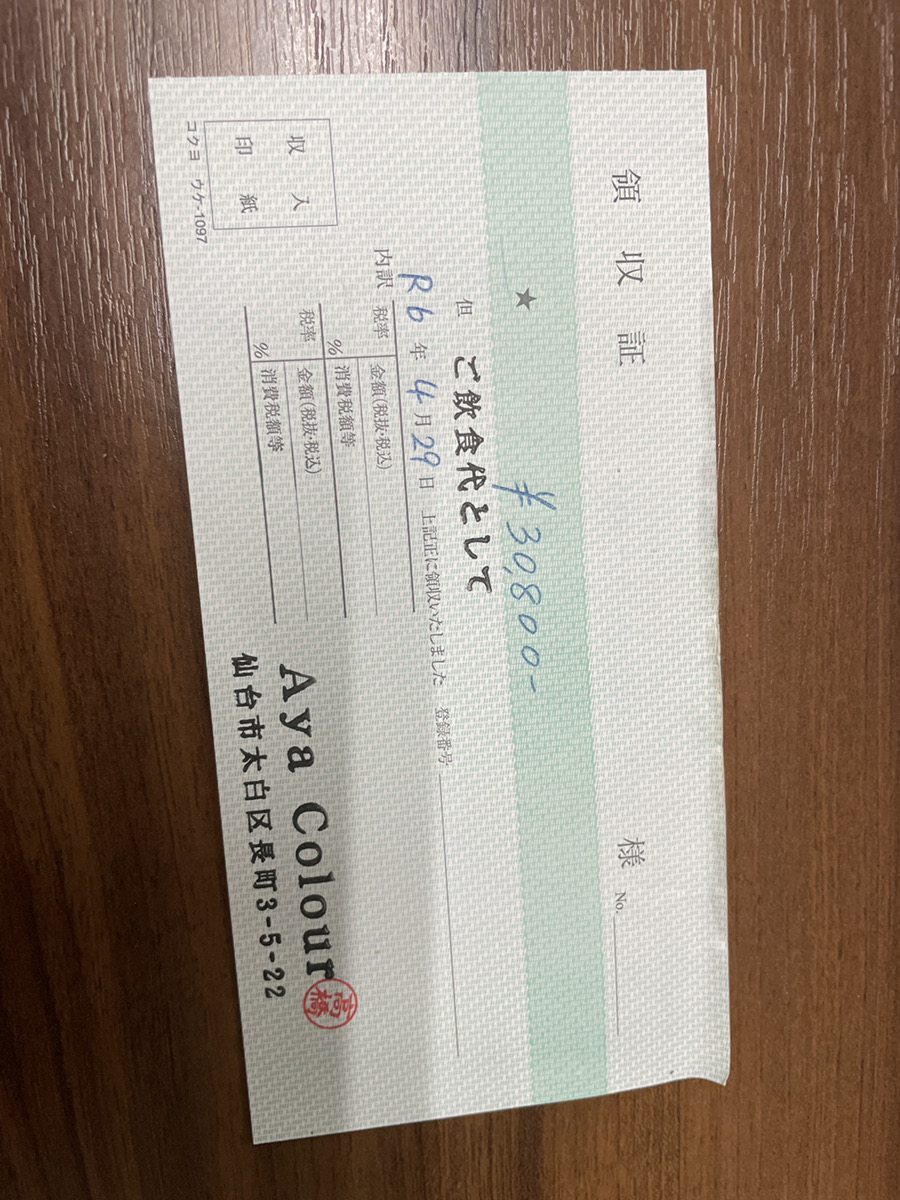 領収証
様 No.
★ ¥30,800-
但 ご飲食代として
R6年4月29日 上記正に領収いたしました 登録番号
内訳
税率 金額(税抜・税込)
% 消費税額等
税率 金額(税抜・税込)
% 消費税額等
収入
印紙
コクヨ ウケ-1097
Aya Colour
高橋
仙台市太白区長町3-5-22